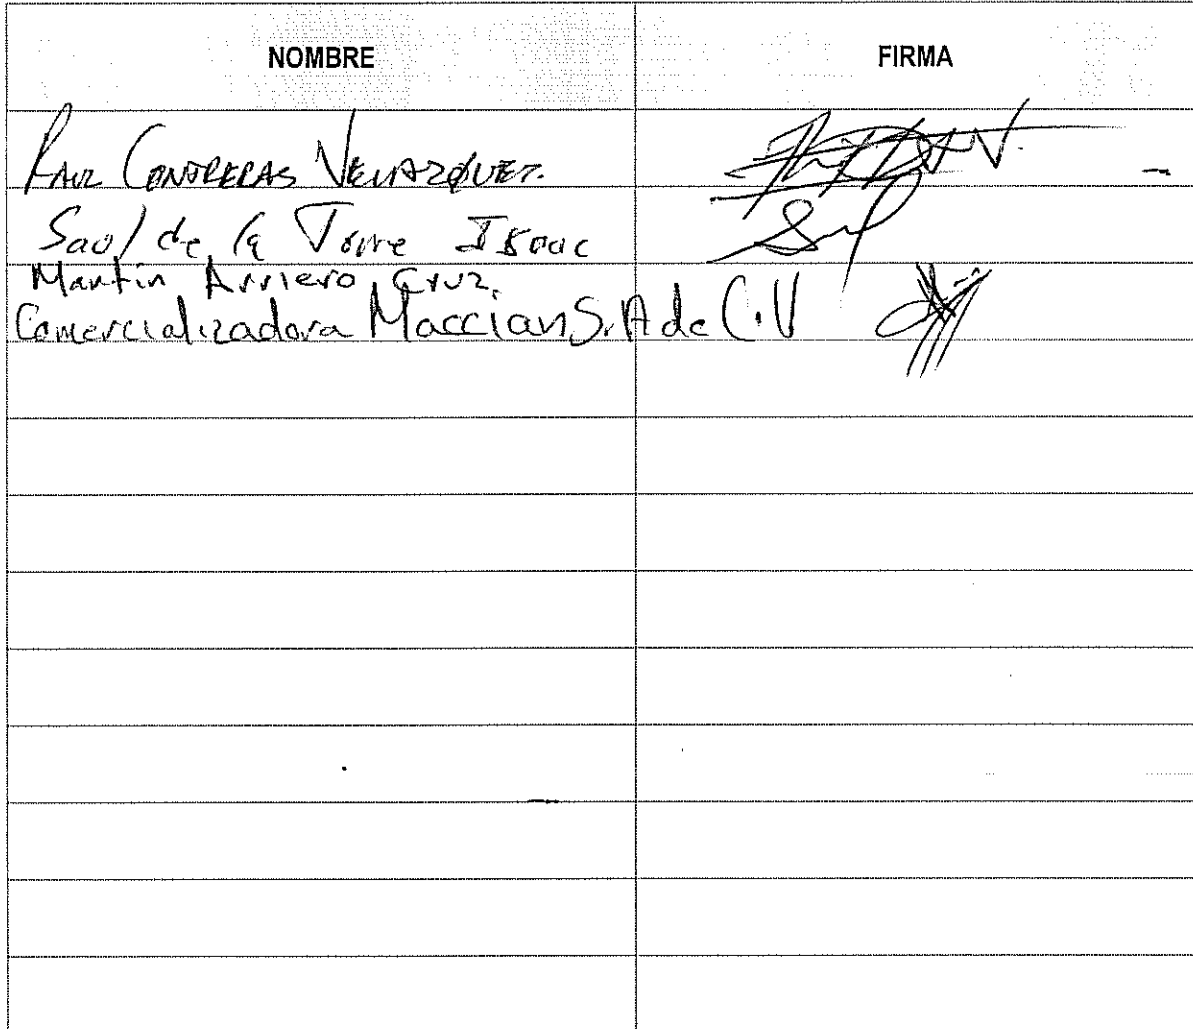 NOMBRE FIRMA
RAUL CONTRERAS VELAZQUEZ.
Saul de la Torre Isaac
Martin Arriero Cruz.
Comercializadora Maccian S.A de C.V